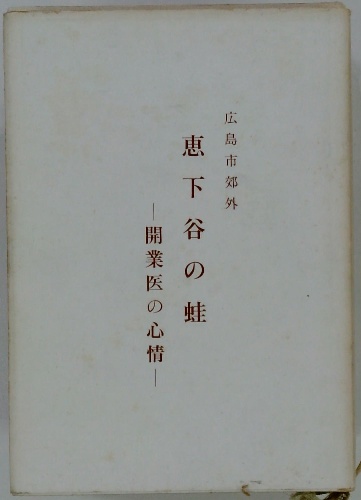 広島市郊外
恵下谷の蛙
―開業医の心情―